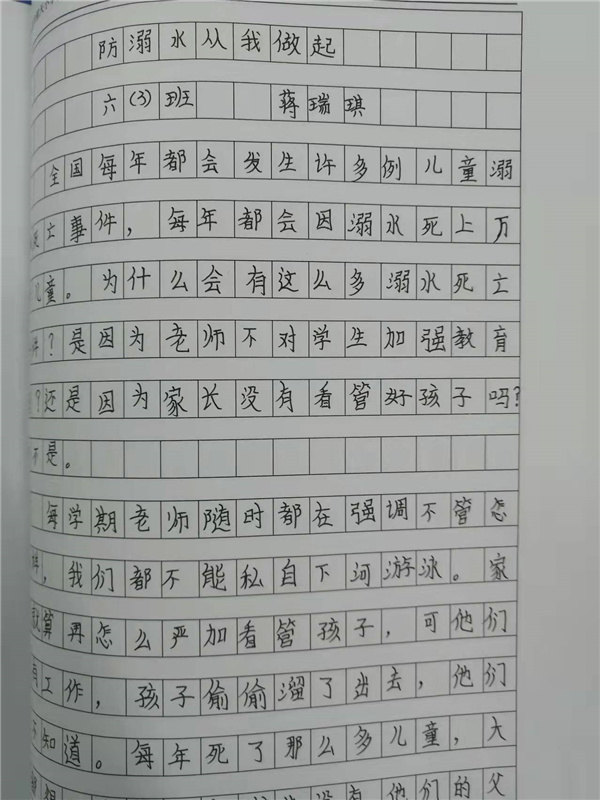 防溺水从我做起
六(3)班 蒋瑞琪
全国每年都会发生许多例儿童溺
死亡事件，每年都会因溺水死上万
儿童。为什么会有这么多溺水死亡
件？是因为老师不对学生加强教育
？还是因为家长没有看管好孩子吗？
不是。
每学期老师随时都在强调不管怎
样，我们都不能私自下河游泳。家
就算再怎么严加看管孩子，可他们
工作，孩子偷偷溜了出去，他们
不知道。每年死了那么多儿童，大
没有他们的父